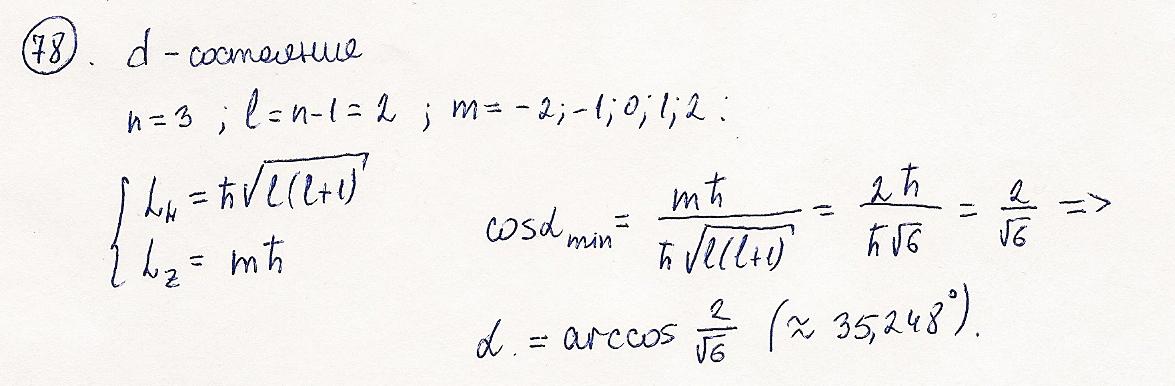 78. d – состояние
n = 3 ; l = n-1 = 2 ; m = -2; -1; 0; 1; 2 :
{ Lн = ħ√(l(l+1))
Lz = mħ
cosα min = mħ / ħ√(l(l+1)) = 2ħ / ħ√6 = 2/√6 =>
α. = arccos 2/√6 (≈ 35,248°).